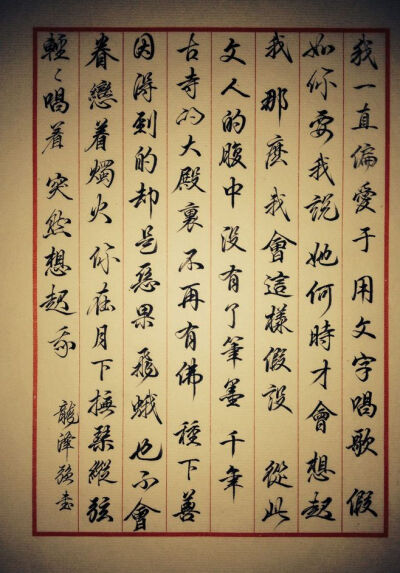 我一直偏愛于用文字唱歌 假
如你要我說她何時才會想起
我 那麼我會這樣假設 從此
文人的腹中没有了筆墨 千年
古寺的大殿裏不再有佛 種下善
因得到的却是惡果 飛蛾也不會
眷戀着燭火 你在月下撫琴縱弦
輕〻唱着 突然想起我
龍澤强書